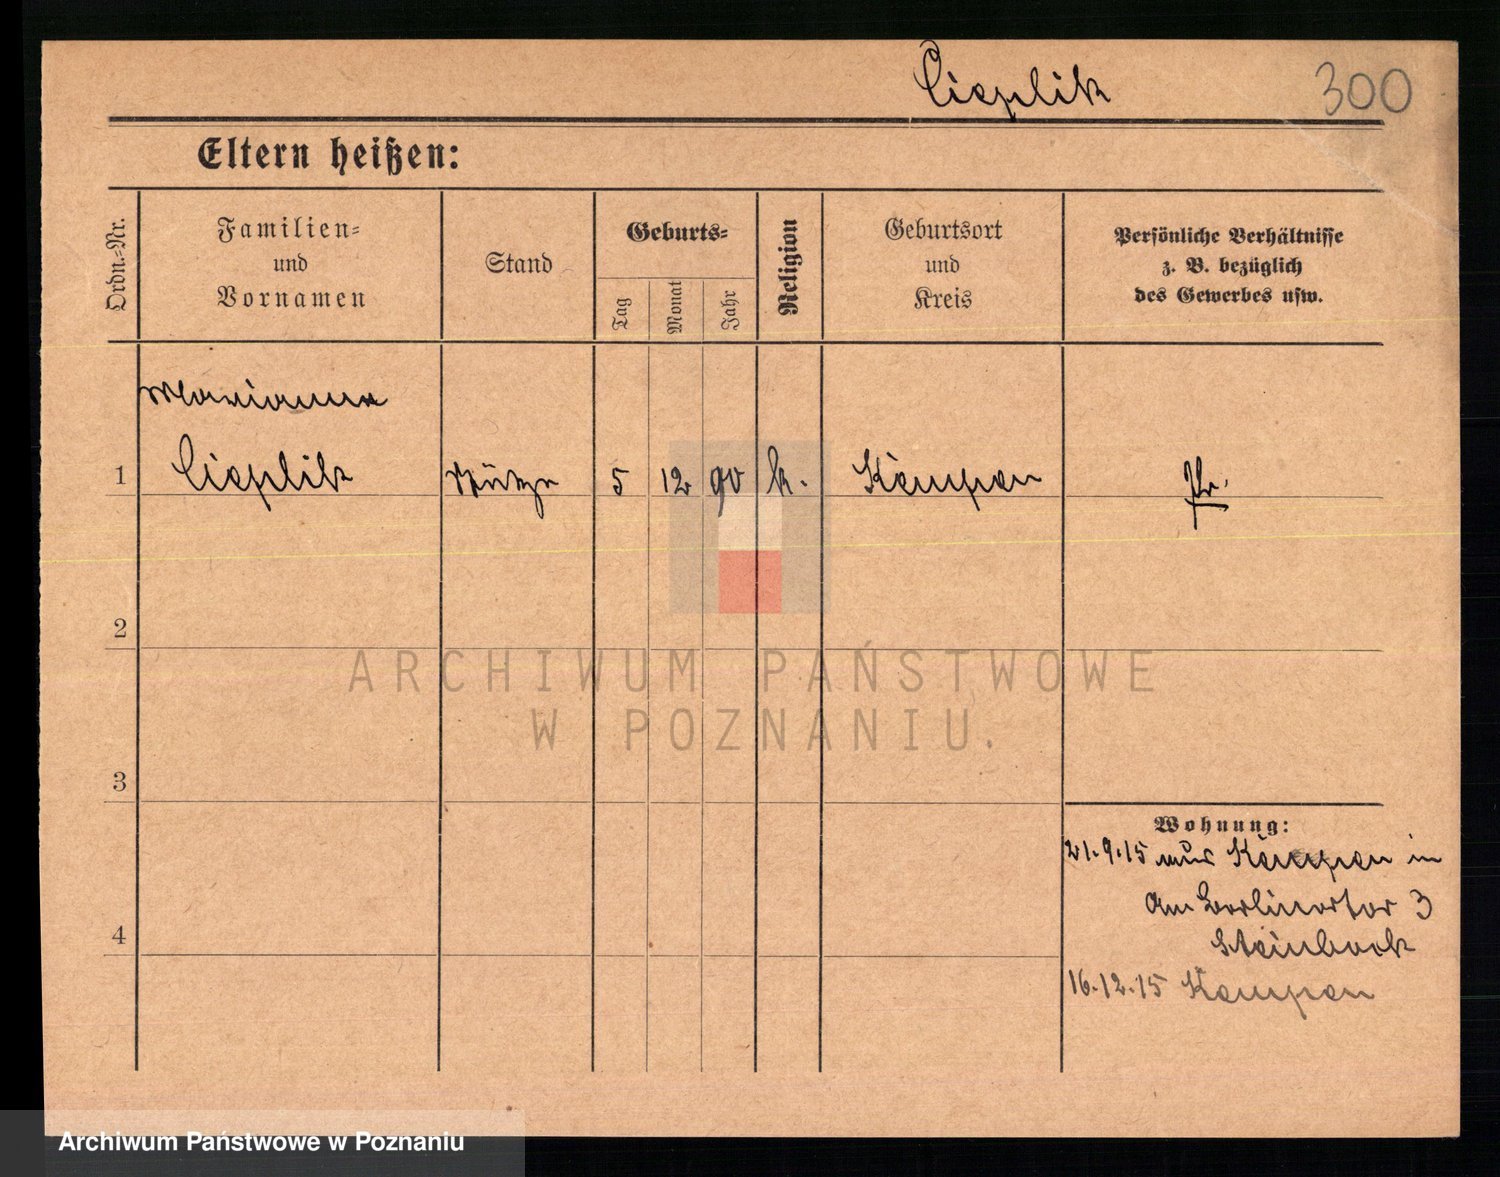 Cieplik 300
Eltern heißen:
Ordn.-Nr.
Familien-
und
Vornamen
Stand
Geburts-
Tag
Monat
Jahr
Religion
Geburtsort
und
Kreis
Persönliche Verhältnisse
z. B. bezüglich
des Gewerbes usw.
Marianna
1 Cieplik Stütze 5 12 90 k. Kempen Pr.
2
ARCHIWUM PAŃSTWOWE
W POZNANIU.
3
Wohnung:
21.9.15 aus Kempen in
Am Berlinertor 3
4
Steinbock
16.12.15 Kempen
Archiwum Państwowe w Poznaniu